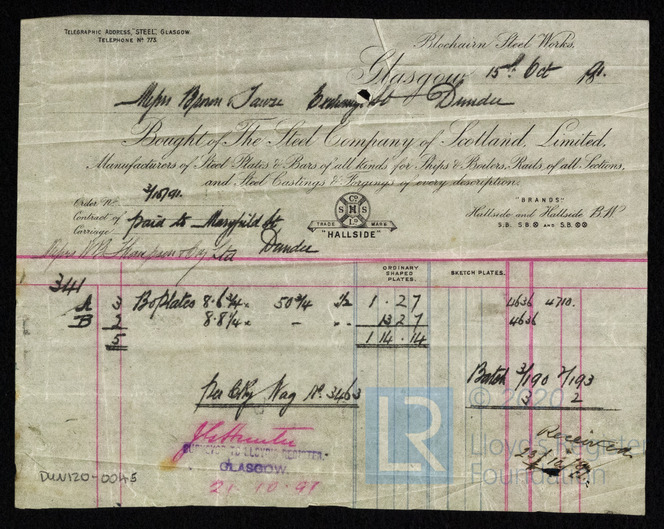 TELEGRAPHIC ADDRESS, "STEEL", GLASGOW.
TELEPHONE Nº 773.
Blochairn Steel Works,
Glasgow 15th Oct 1891.
Messrs Brown & Tawse Dundee
Bought of The Steel Company of Scotland, Limited,
Manufacturers of Steel Plates & Bars of all kinds for Ships & Boilers, Rails of all Sections,
and Steel Castings & Forgings of every description.
Order Nº
Contract of
Carriage paid to Maryfield St
Dundee
Co
S M S
Ld
TRADE MARK
"HALLSIDE"
"BRANDS"
Hallside and Hallside B.W
S.B. S.B⊗ AND S.B.⊗⊗
ORDINARY SHAPED PLATES.
SKETCH PLATES.
341
A 3 Bo Plates 8.6¾ x 50¾ ½ 1.27 4636 4710.
B 2 8.8¼ x - 13 27 4636
5 1 14.14
per C Ry Wag Nº 3463
Batch 3/190 2/193
3 2
SURVEYOR TO LLOYD'S REGISTER,
GLASGOW.
21.10.91
Received
DUN120-0045
LR
© 2020
Lloyd's Register
Foundation